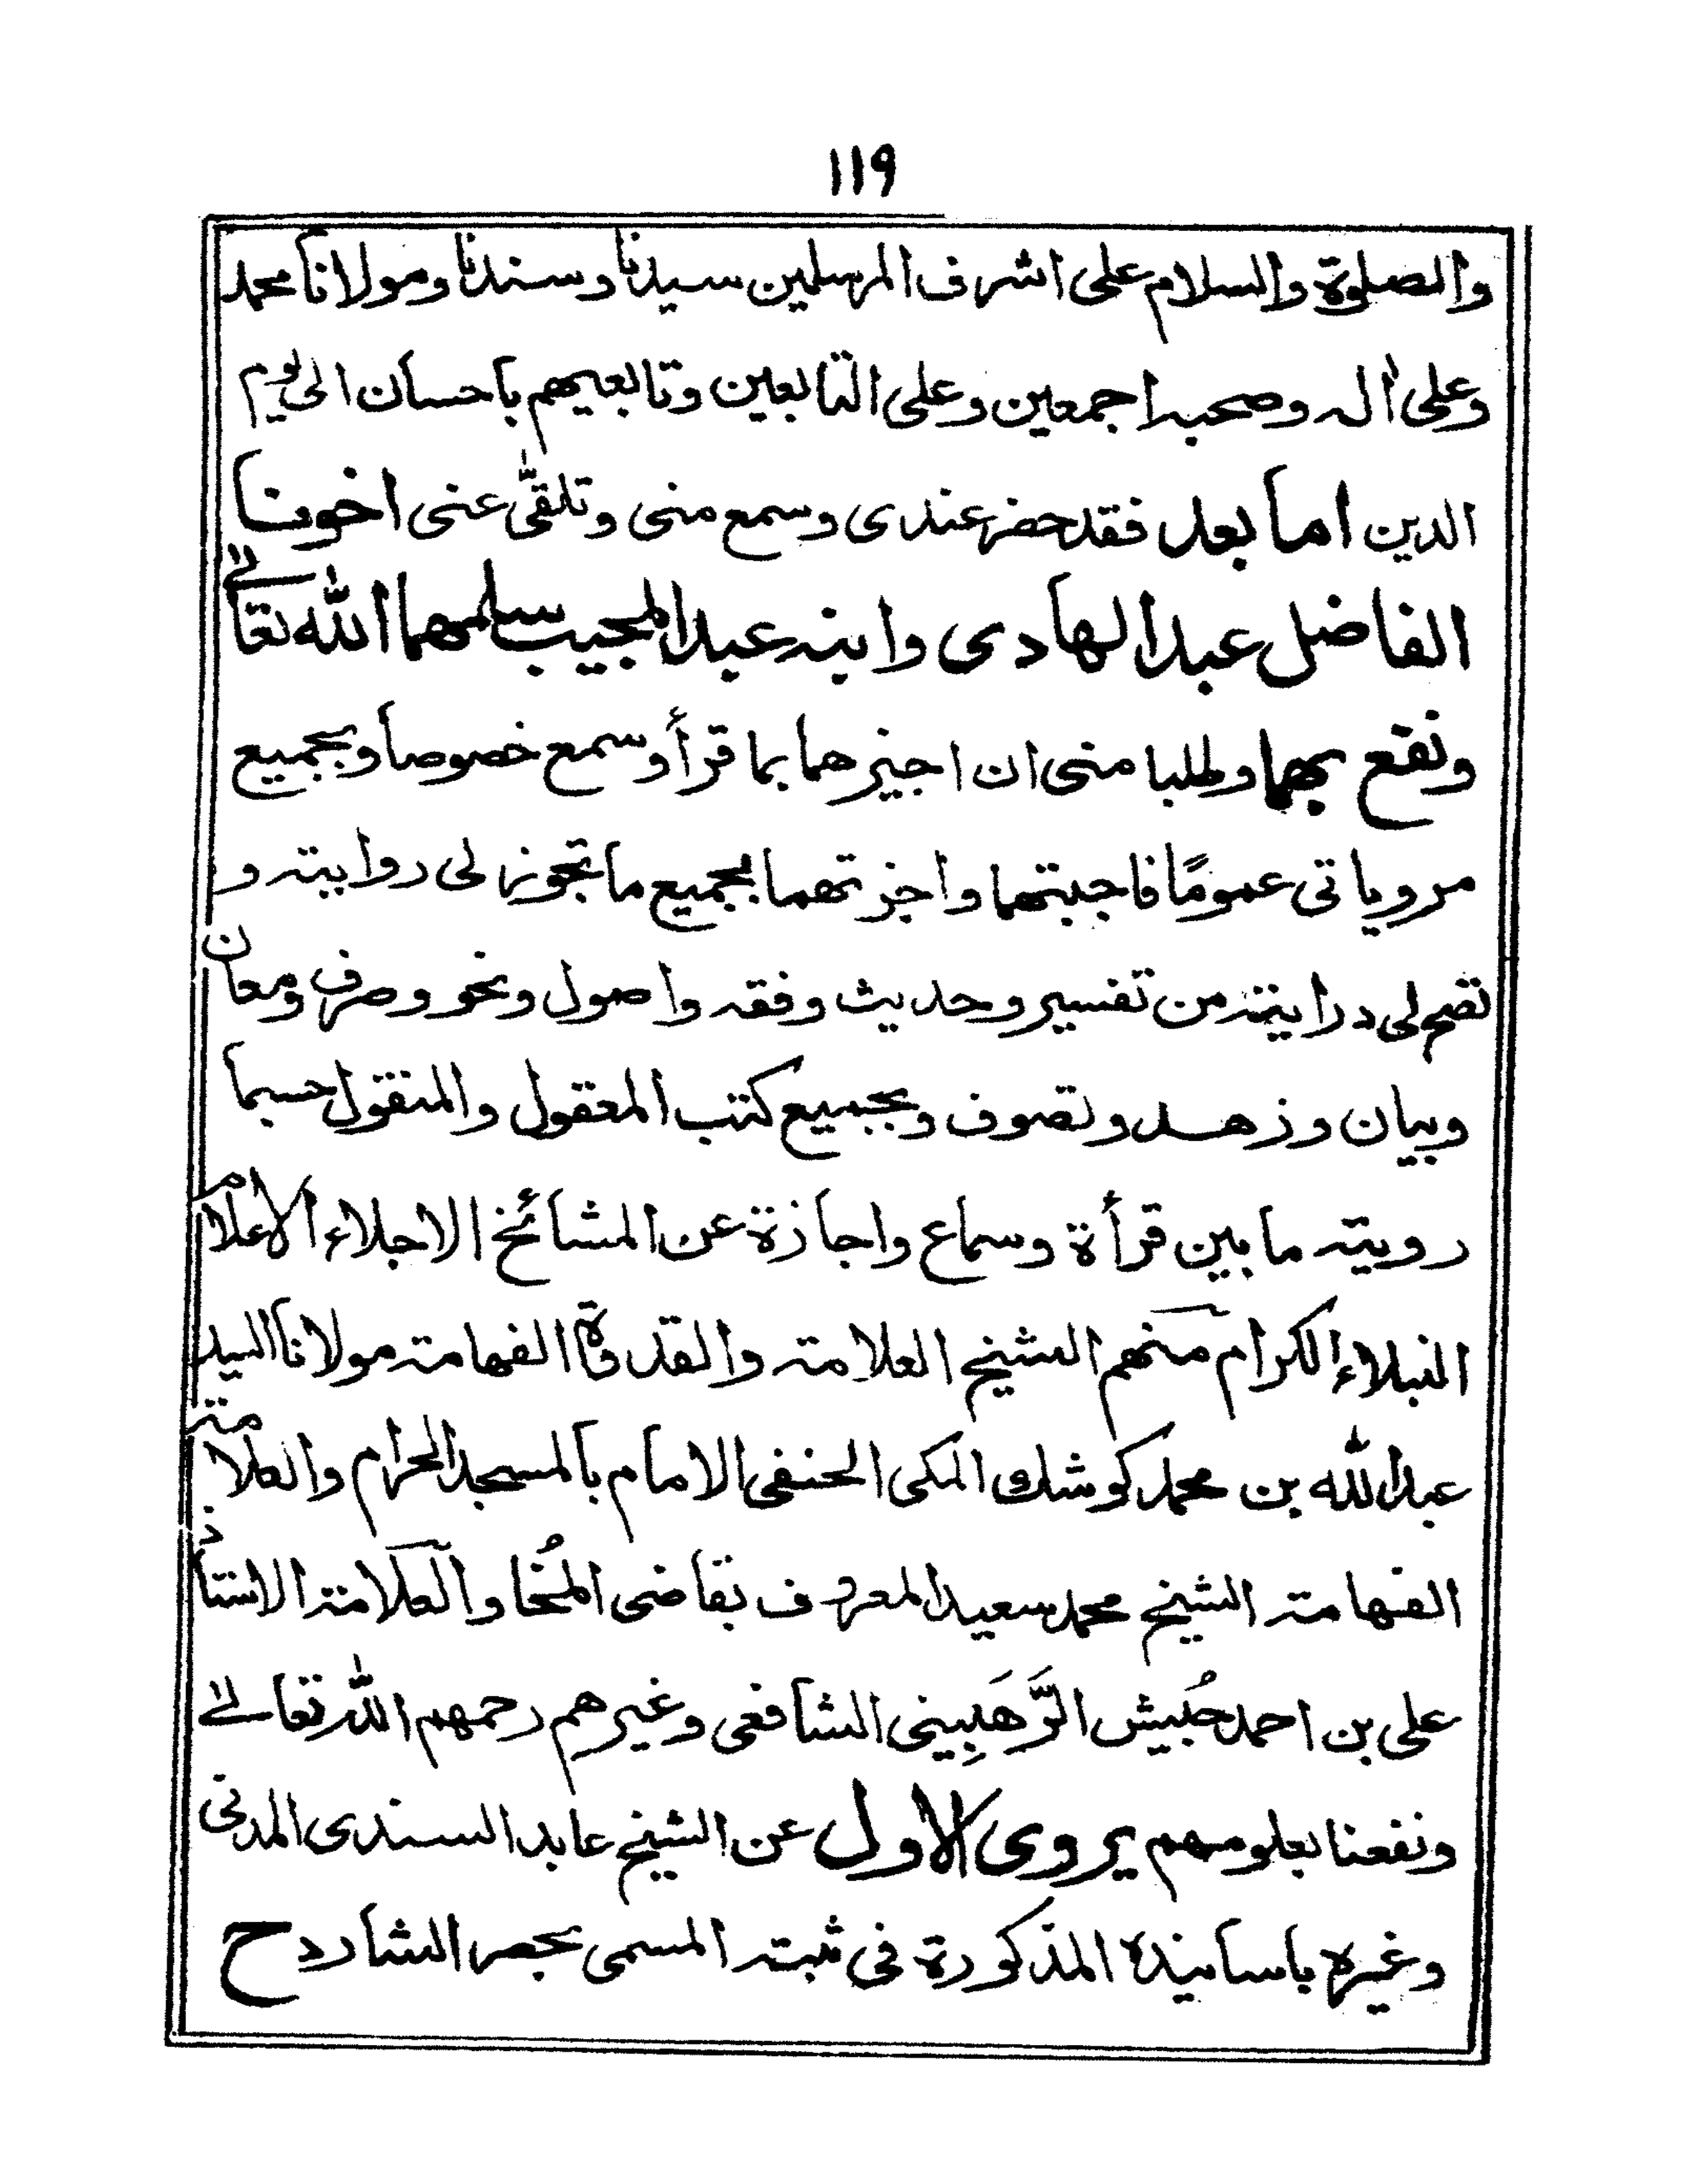 ١١٩
والصلوة والسلام على اشرف المرسلين سيدنا وسندنا ومولانا محمد
وعلى اٰله وصحبه اجمعين وعلى التابعين وتابعيهم باحسان الى يوم
الدين اما بعد فقد حضر عندى وسمع منى وتلقّى عنى اخونا
الفاضل عبد الهادى وابنه عبد المجيب سلمهما الله تعالے
ونفع بهما وطلبا منى ان اجيزهما بما قرأ وسمع خصوصا وبجميع
مروياتى عمومًا فاجبتهما واجزتهما بجميع ما تجوز لى روايته و
تصح لى درايته من تفسير وحديث وفقه واصول ونحو وصرف ومعان
وبيان وزهد وتصوف وبجميع كتب المعقول والمنقول حسبما
رويته ما بين قرأة وسماع واجازة عن المشائخ الاجلاء الاعلام
النبلاء الكرام منهم الشيخ العلامة والقدوة الفهامة مولانا السيد
عبد الله بن محمد كوشك المكى الحنفى الامام بالمسجد الحرام والعلامة
الفهامة الشيخ محمد سعيد المعروف بقاضى المُخا والعلامة الاستاذ
على بن احمد حُبَيش الرَّهَبِينى الشافعى وغيرهم رحمهم الله تعالے
ونفعنا بعلومهم يروى الاول عن الشيخ عابد السندى المدنى
وغيره باسانيده المذكورة فى ثبته المسمى بحصر الشارد ح